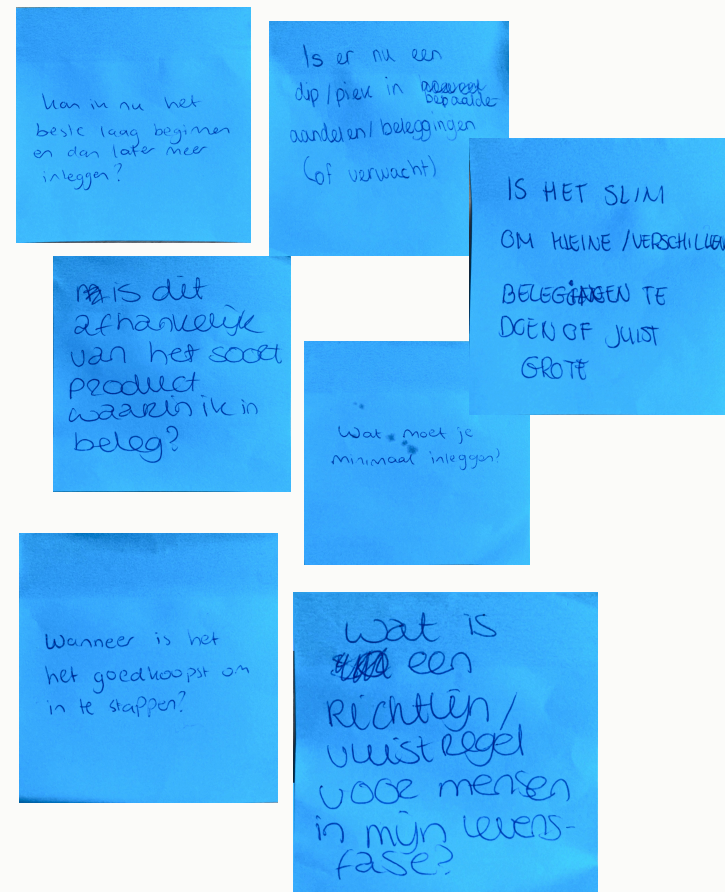 Kan ik nu het
beste laag beginnen
en dan later meer
inleggen?
Is er nu een
dip/piek in
bepaalde
aandelen/beleggingen
(of verwacht)
IS HET SLIM
OM KLEINE/VERSCHILLEN
BELEGGINGEN TE
DOEN OF JUIST
GROTE
is dit
afhankelijk
van het soort
product
waarin ik in
beleg?
Wat moet je
minimaal inleggen?
Wanneer is het
het goedkoopst om
in te stappen?
Wat is
een
Richtlijn/
vuistregel
voor mensen
in mijn levens-
fase?